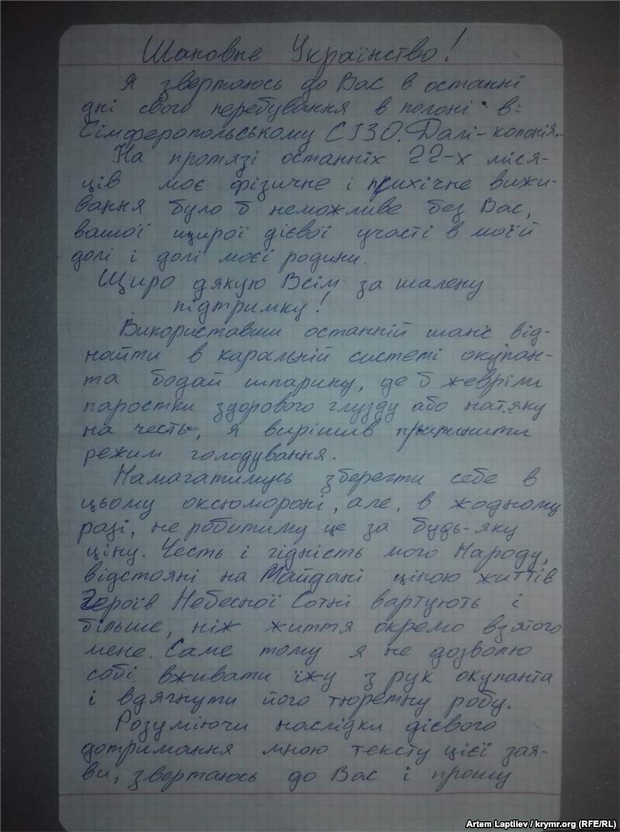 Шановне Українство!
Я звертаюсь до Вас в останні
дні свого перебування в полоні в
Сімферопольському СІЗО. Далі - колонія...
На протязі останніх 22-х міся-
ців моє фізичне і психічне вижи-
вання було б неможливе без Вас,
вашої щирої дієвої участі в моїй
долі і долі моєї родини.
Щиро дякую Всім за шалену
підтримку!
Використавши останній шанс від-
найти в каральній системі окупан-
та бодай шпарину, де б жевріли
паростки здорового глузду або натяку
на честь, я вирішив припинити
режим голодування.
Намагатимусь зберегти себе в
цьому оксюмороні, але, в жодному
разі, не робитиму це за будь-яку
ціну. Честь і гідність мого Народу,
відстояні на Майдані ціною життів
Героїв Небесної Сотні вартують і
більше, ніж життя окремо взятого
мене. Саме тому я не дозволю
собі вживати їжу з рук окупанта
і вдягнути його тюремну робу.
Розуміючи наслідки дієвого
дотримання мною тексту цієї зая-
ви, звертаюсь до Вас і прошу
Artem Laptiiev / krymr.org (RFE/RL)